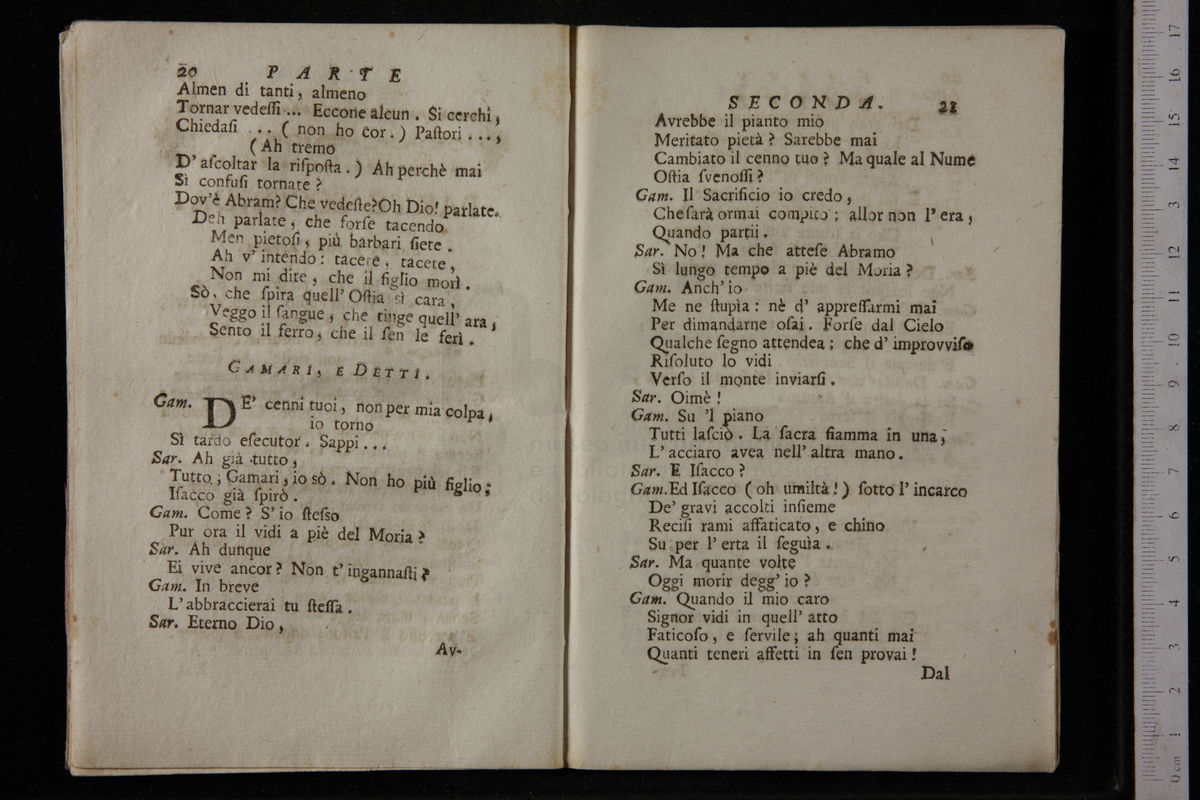 20 PARTE
Almen di tanti, almeno
Tornar vedeſſi ... Eccone alcun. Si cerchi,
Chiedaſi ... ( non ho cor. ) Paſtori ...,
( Ah tremo
D' aſcoltar la riſpoſta. ) Ah perchè mai
Sì confuſi tornate ?
Dov'è Abram? Che vedeſte? Oh Dio! parlate.
Deh parlate, che forſe tacendo
Men pietoſi, più barbari ſiete.
Ah v' intendo: tacere, tacete,
Non mi dite, che il figlio morì.
Sò, che ſpira quell' Oſtia sì cara,
Veggo il ſangue, che tinge quell' ara,
Sento il ferro, che il ſen le ferì.
GAMARI, E DETTI.
Gam. DE' cenni tuoi, non per mia colpa,
io torno
Sì tardo eſecutor. Sappi ...
Sar. Ah già tutto,
Tutto; Gamari, io sò. Non ho più figlio;
Iſacco già ſpirò.
Gam. Come? S' io ſteſso
Pur ora il vidi a piè del Moria ?
Sar. Ah dunque
Ei vive ancor? Non t' ingannaſti ?
Gam. In breve
L' abbraccierai tu ſteſſa.
Sar. Eterno Dio,
Av-
SECONDA. 21
Avrebbe il pianto mio
Meritato pietà? Sarebbe mai
Cambiato il cenno tuo? Ma quale al Nume
Oſtia ſvenoſſi ?
Gam. Il Sacrificio io credo,
Che ſarà ormai compito; allor non l' era,
Quando partii.
Sar. No! Ma che atteſe Abramo
Sì lungo tempo a piè del Moria ?
Gam. Anch' io
Me ne ſtupìa: nè d' appreſſarmi mai
Per dimandarne oſai. Forſe dal Cielo
Qualche ſegno attendea; che d' improvviſo
Riſoluto lo vidi
Verſo il monte inviarſi.
Sar. Oimè !
Gam. Su 'l piano
Tutti laſciò. La ſacra fiamma in una,
L' acciaro avea nell' altra mano.
Sar. E Iſacco ?
Gam. Ed Iſacco ( oh umiltà! ) ſotto l' incarco
De' gravi accolti inſieme
Reciſi rami affaticato, e chino
Su per l' erta il ſeguìa.
Sar. Ma quante volte
Oggi morir degg' io ?
Gam. Quando il mio caro
Signor vidi in quell' atto
Faticoſo, e ſervile; ah quanti mai
Quanti teneri affetti in ſen provai !
Dal
0 cm 1 2 3 4 5 6 7 8 9 10 11 12 13 14 15 16 17